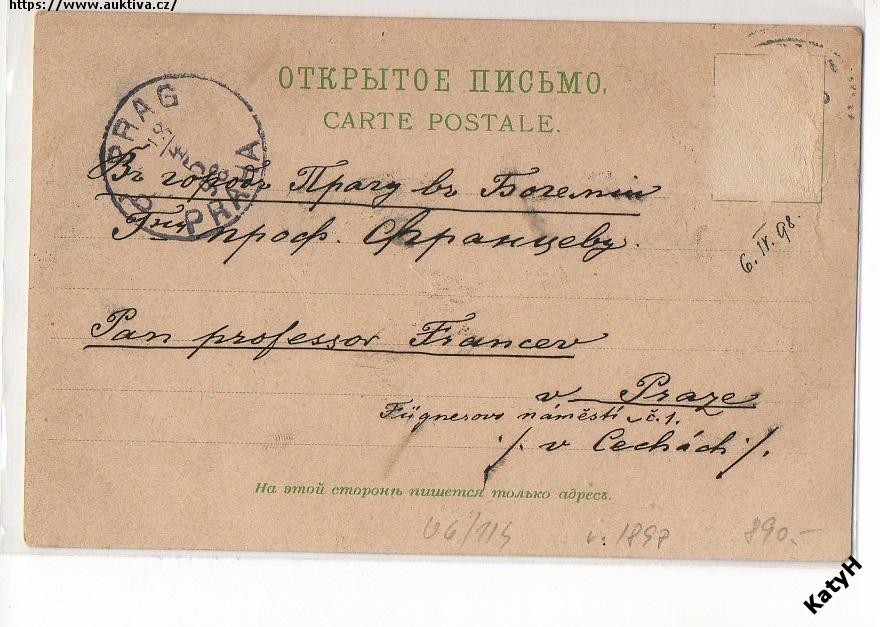 https://www.auktiva.cz/
ОТКРЫТОЕ ПИСЬМО.
CARTE POSTALE.
PRAG
PRAHA
Въ городъ Прагу въ Богеміи
Гну проф. Францеву.
6. IV. 98.
Pan professor Francev
v Praze
Fügnerovo náměstí č. 1.
/. v Cechách /.
На этой сторонѣ пишется только адресъ.
v. 1898
890.-
KatyH